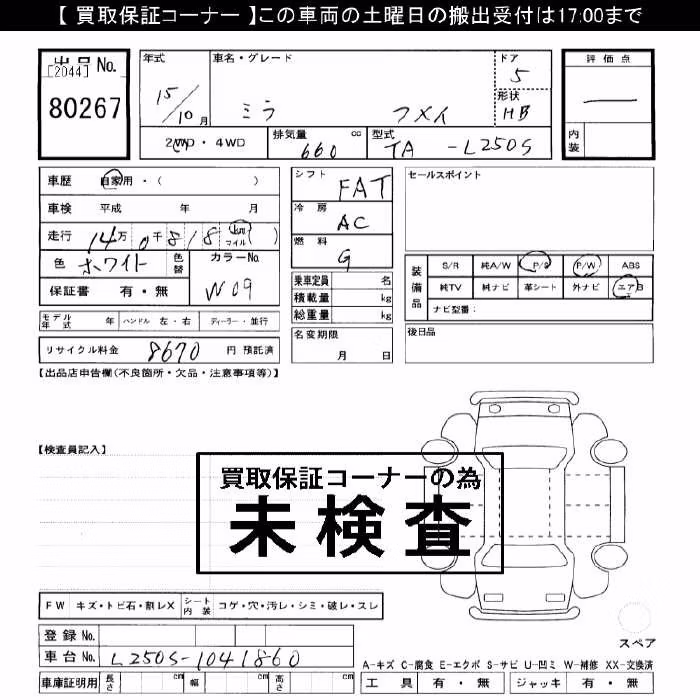 【 買取保証コーナー 】この車両の土曜日の搬出受付は17:00まで
出品No.
[2044]
80267
年式
15/10月
車名・グレード
ミラ
ドア
5
形状
HB
2WD・4WD
排気量 660 cc
型式 TA -L250S
評価点
―
内装
車歴 自家用・( )
車検 平成 年 月
走行 14万0千818 km マイル ( )
色 ホワイト 色替
カラーNo. W09
保証書 有・無
シフト FAT
冷房 AC
燃料 G
乗車定員 名
積載量 kg
総重量 kg
セールスポイント
装備品 S/R 純A/W P/S P/W ABS
純TV 純ナビ 革シート 外ナビ エアB
ナビ型番:
モデル年式 年 ハンドル 左・右 ディーラー・並行
名変期限 月 日
後日品
リサイクル料金 8670 円 預託済
【出品店申告欄(不良箇所・欠品・注意事項等)】
【検査員記入】
買取保証コーナーの為
未検査
FW キズ・トビ石・割レX シート内装 コゲ・穴・汚レ・シミ・破レ・スレ
登録No.
車台No. L250S-1041860
車庫証明用 長さ cm 幅 cm 高さ cm
スペア
A-キズ C-腐食 E-エクボ S-サビ U-凹ミ W-補修 XX-交換済
工具 有・無 ジャッキ 有・無